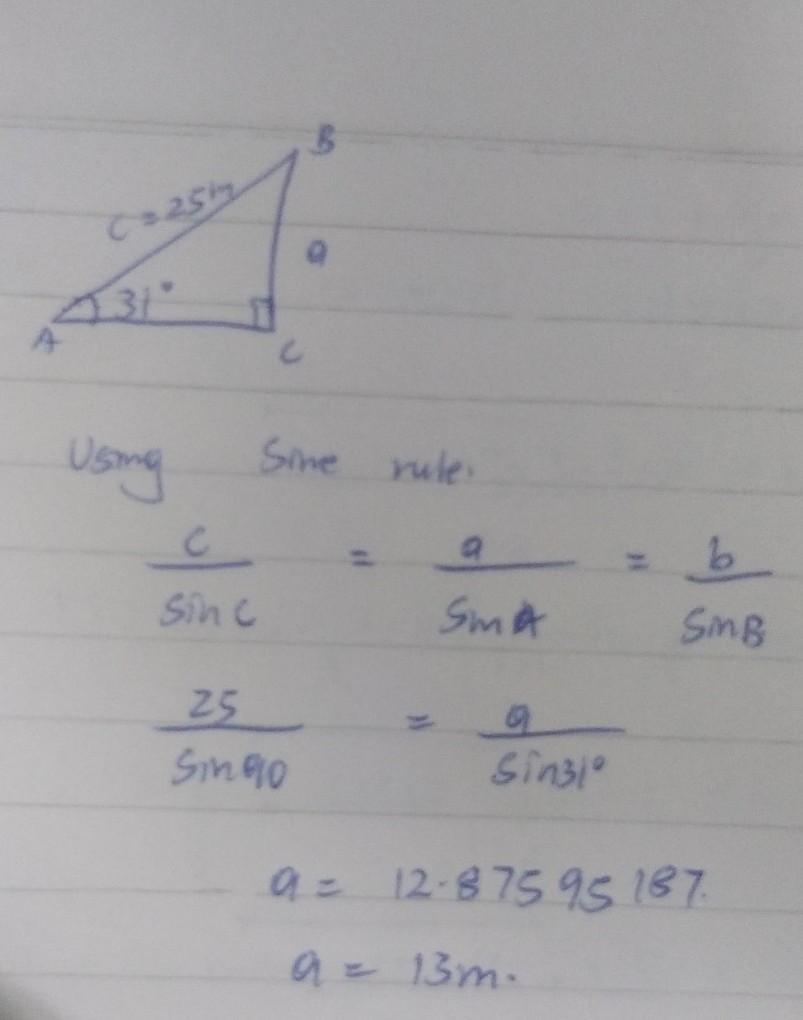 B
c = 25m
a
31°
A
C
Using Sine rule.
c/sin C = a/Sin A = b/Sin B
25/Sin 90 = a/Sin 31°
a = 12.87595187.
a = 13m.